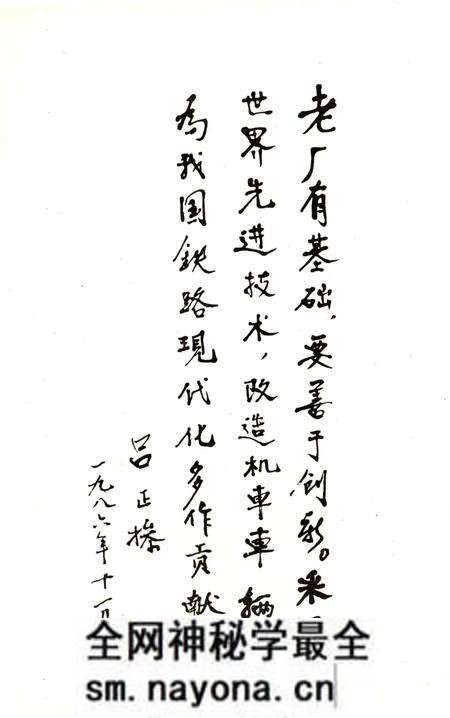 老厂有基础，要善于创新。采
世界先进技术，改造机車車辆
為我国鉄路現代化多作贡献
吕正操
一九八六年十一月
全网神秘学最全
sm.nayona.cn